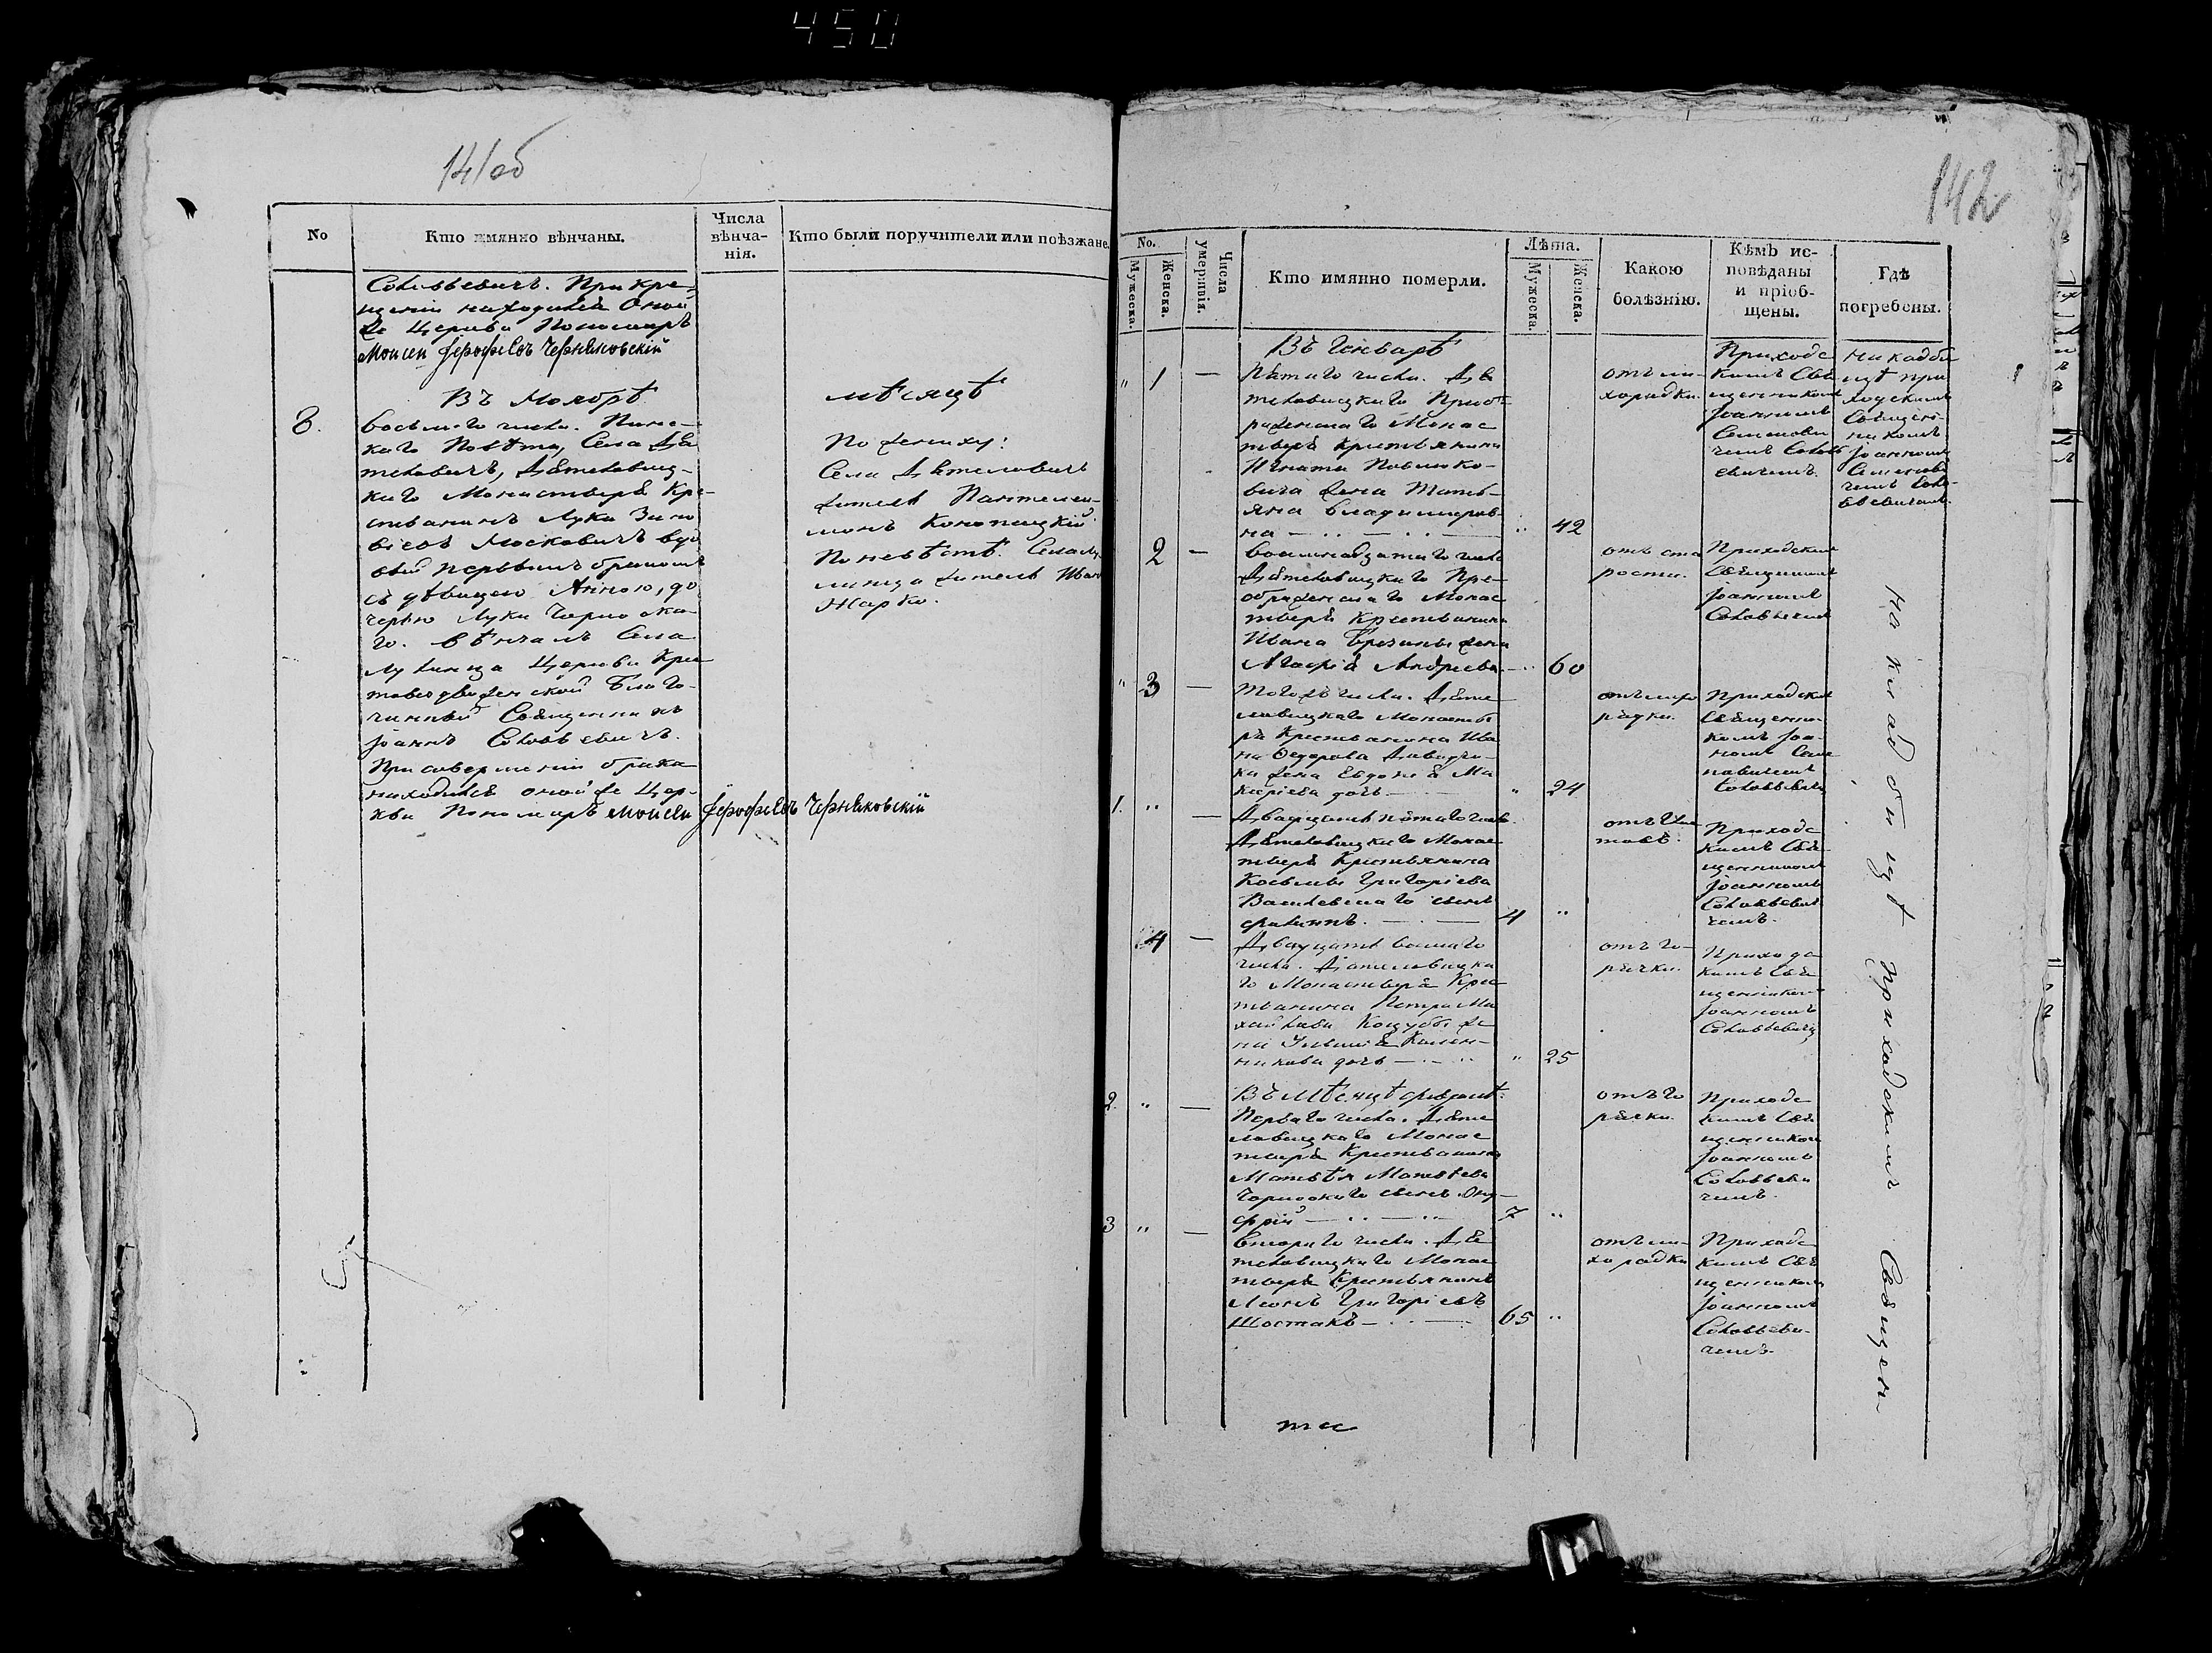 450
141об
No
Кто имянно вѣнчаны.
Числа вѣнча-нія.
Кто были поручители или поѣзжане.
Соловьевичъ. При кре-
щеніи находился оной
же Церкви Пономаръ
Моисеи Ферофѣевъ Черняковскій
Въ Ноябрѣ
мѣсяцѣ
8.
Восьмого числа. Пинс-
каго Повѣта, Села Дя
теловичъ, Дятеловиц-
каго Монастыря Кре-
стьянинъ Лука Зино
віевъ Москович вдо
вый первымъ бракомъ
съ дѣвицею Анною, до
черью Луки Чорнока
го. Вѣнчалъ Села
Лулинца Церкви Крес
товоздвиженской Благо-
чинный Священникъ
Іоаннъ Соловьевичъ.
При совершеніи брака
находился оной же Цер-
кви Пономаръ Моисеи Ферофѣевъ Черняковскій
По жениху:
Села Дятеловичъ
житель Пантелеи-
монъ Конопацкій.
По невѣстѣ. Села Лу-
линца житель Иванъ
Жарко.
142
No.
Мужеска.
Женска.
Числа умертвія.
Кто имянно померли.
Лѣта.
Мужеска.
Женска.
Какою болѣзнію.
Кѣмъ ис-повѣданы и пріоб-щены.
Гдѣ погребены.
Въ Генварѣ
" 1 —
Пятаго числа. Дя
теловицкаго Преоб-
раженскаго Монас
тыря Крестьянина
Игната
вича жена Тать-
яна Владимиров-
на — " 42
отъ ли-
хорадки.
Приходс
кимъ Свя
щенникомъ
Іоанномъ
Семенови
чемъ Соловь
евичемъ.
На кладби
щѣ при
ходскимъ
Священ-
никомъ
Іоанномъ
Семенови
чемъ Соло-
вьевичемъ.
2 —
Восьмнадцатаго числа
Дятеловицкаго Пре-
ображенскаго Монас
тыря Крестьянина
Ивана Брезины жена
Агафія Андреева — " 60
отъ ста
рости.
Приходскимъ
Священникомъ
Іоанномъ
Соловьевичемъ
" 3 —
Тогожъ числа. Дяте
ловицкаго Монасты
ря Крестьянина Ива
на Федорова
ка жена Евдокія Ма
каріева дочь — " 24
Приходскимъ
Священни-
комъ Іоа-
номъ Семе
новичемъ
Соловьевич
1. " —
Двадцать пятаго числа
Дятеловицкаго Монас
тыря Крестьянина
Косьмы Григоріева
Василевскаго сынъ
Филиппъ. — 4 "
Приходс
кимъ Свя-
щенникомъ
Іоанномъ
Соловьеви
чемъ.
4 —
Двадцать восьмаго
числа. Дятеловицка
го Монастыря Крес
тьянина Петра Ми
хайлова Коцубы же
на Ульянія Калин-
никова дочь — " 25
отъ го-
рячки.
Приходс
кимъ Свя
щенникомъ
Іоанномъ
Соловьевичемъ
2. " —
Въ Мѣсяцѣ февралѣ.
Перваго числа. Дяте
ловицкаго Монас
тыря Крестьянина
Матвѣя Матвѣева
Чорноокаго сынъ Ону-
фрій — 7 "
отъ го
рячки.
Приходс
кимъ Свя
щенникомъ
Іоанномъ
Соловьеви
чемъ.
3 " —
Втораго числа. Дя
теловицкаго Монас
тыря Крестьянинъ
Леонъ Григоріевъ
Шостакъ — 65 "
отъ ли-
хорадки
Приходс
кимъ Свя
щенникомъ
Іоанномъ
Соловьеви-
чемъ.
На кладбищѣ приходскимъ Священ